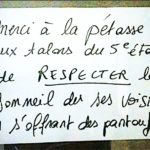 merci à la pétasse
ux talons du 5e éta
de RESPECTER le
ommeil des ses voisi
s'offrant des pantouf